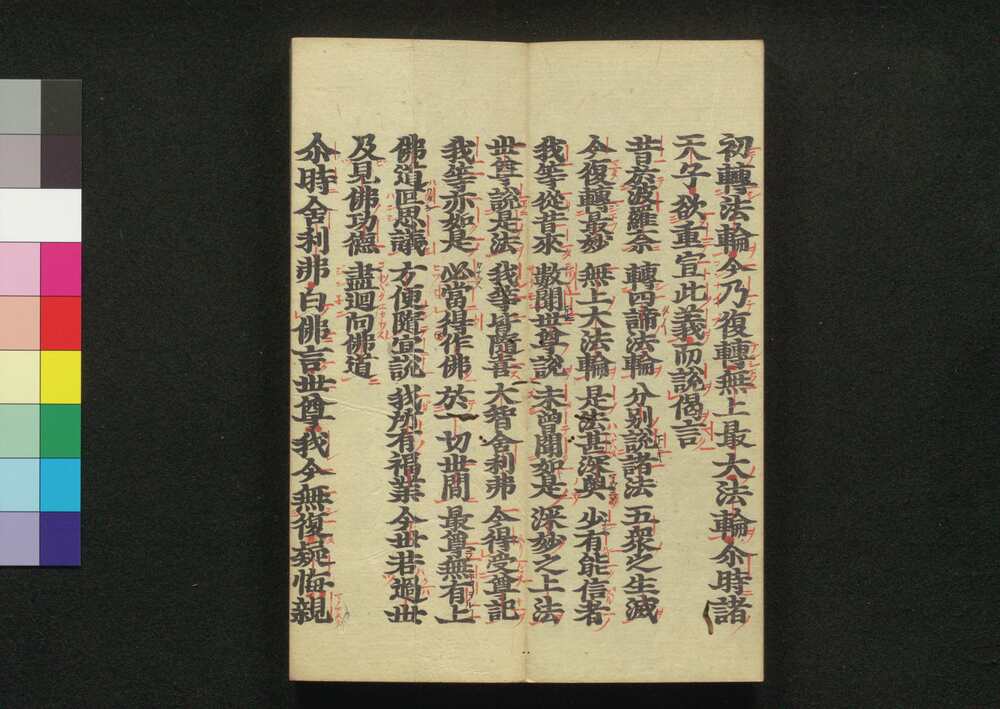 初轉法輪今乃復轉無上最大法輪尒時諸
天子欲重宣此義而說偈言
昔於波羅奈　轉四諦法輪　分別說諸法　五衆之生滅
今復轉最妙　無上大法輪　是法甚深奥　少有能信者
我等從昔來　數聞世尊說　未曾聞如是　深妙之上法
世尊說是法　我等皆隨喜　大智舍利弗　今得受尊記
我等亦如是　必當得作佛　於一切世間　最尊無有上
佛道叵思議　方便隨宜說　我所有福業　今世若過世
及見佛功德　盡迴向佛道
尒時舍利弗白佛言世尊我今無復疑悔親